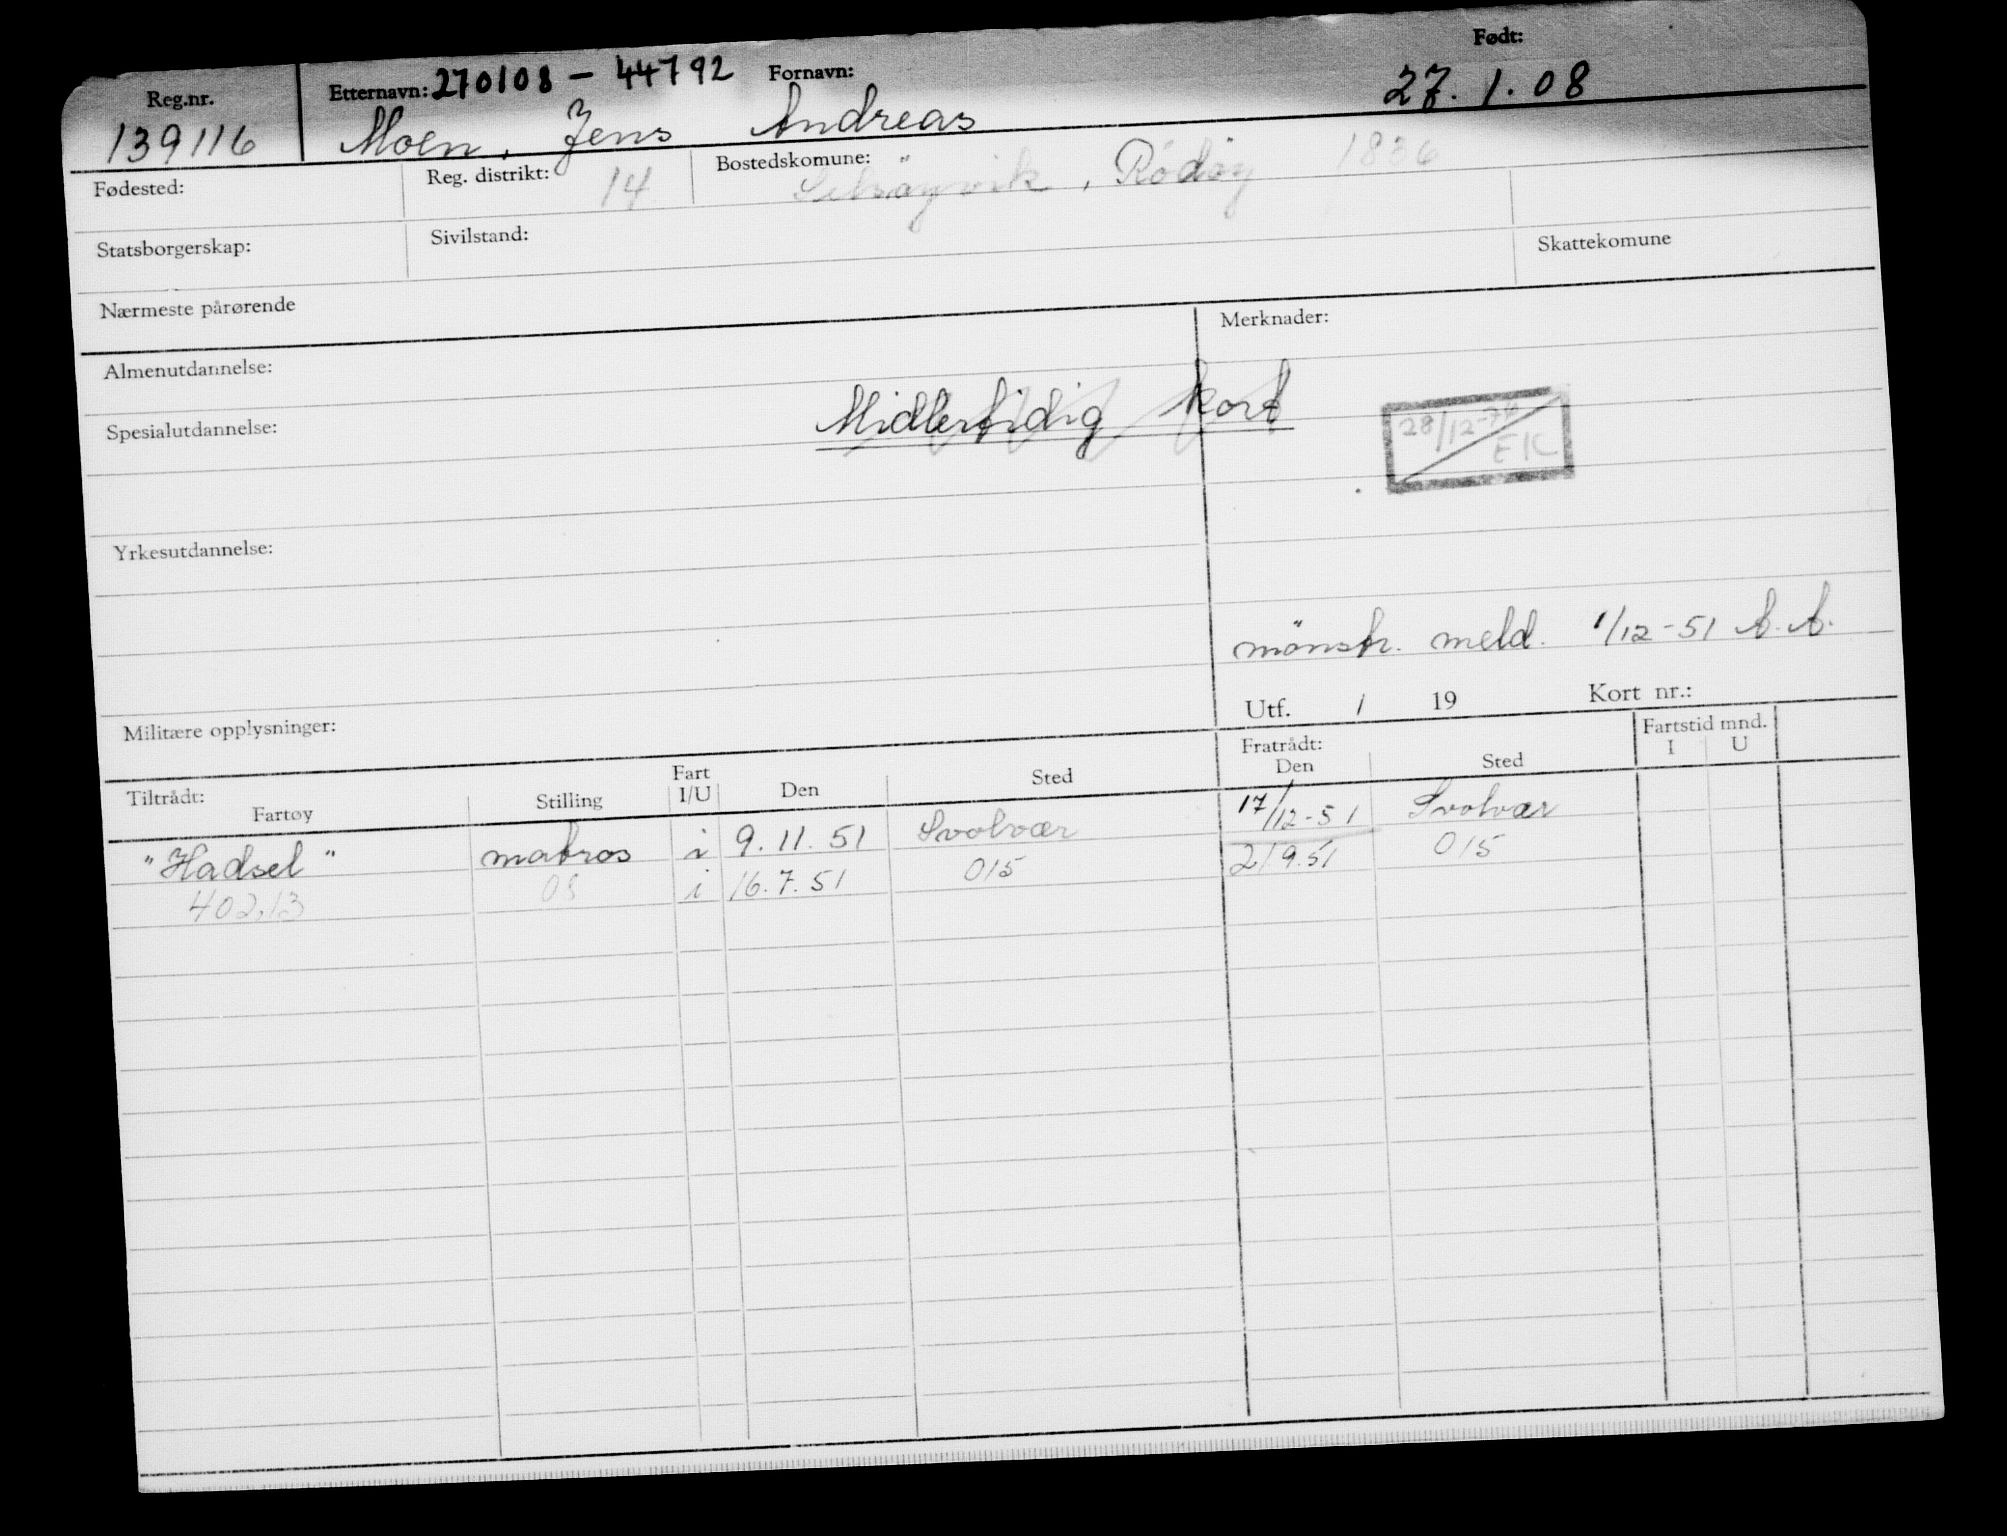 Reg.nr. Etternavn: 270108 - 44792 Fornavn: Født:
139116 Moen, Jens Andreas 27.1.08
Fødested: Reg. distrikt: 14 Bostedskomune: Selsöyvik, Rödöy 1836
Statsborgerskap: Sivilstand: Skattekomune
Nærmeste pårørende
Merknader:
Almenutdannelse:
Midlertidig kort
Spesialutdannelse:
28/12-76
EK
Yrkesutdannelse:
mönstr. meld. 1/12-51 A.A.
Utf. / 19 Kort nr.:
Militære opplysninger:
Tiltrådt: Fart Fratrådt: Fartstid mnd.
Fartøy Stilling I/U Den Sted Den Sted I U
"Hadsel" matros i 9.11.51 Svolvær 17/12-51 Svolvær
402,13 08 i 16.7.51 015 21 9.51 015